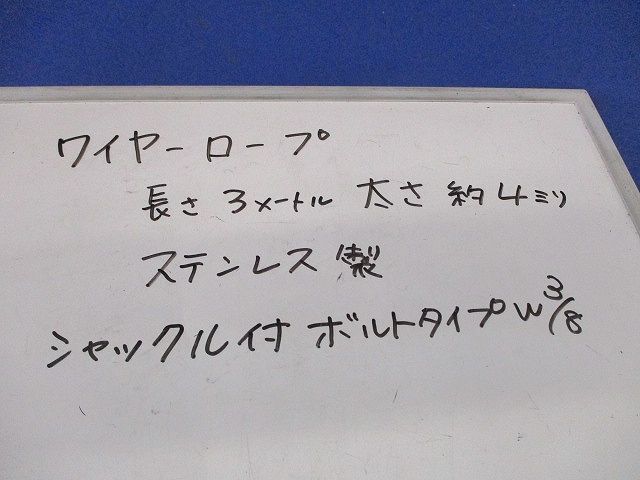 ワイヤーロープ
長さ 3メートル 太さ 約4ミリ
ステンレス製
シャックル付 ボルトタイプ W3/8